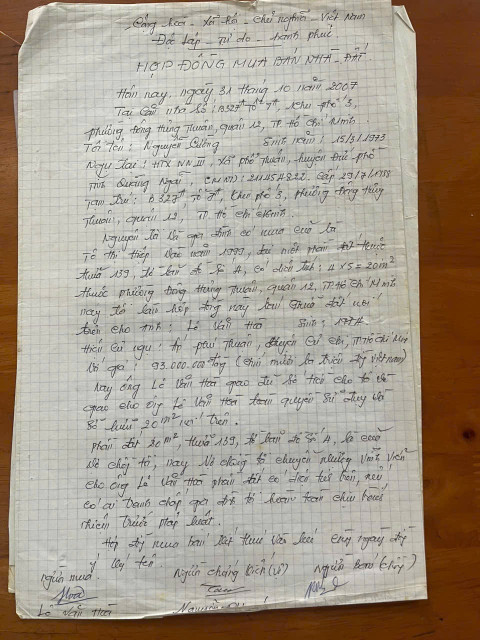 Cộng hoà - Xã hội - Chủ nghĩa - Việt Nam
Độc lập - Tự do - hạnh phúc
HỢP ĐỒNG MUA BÁN NHÀ - ĐẤT
Hôm nay, ngày 31 tháng 10 năm 2007
Tại Căn nhà Số: B327 Tổ 7, khu phố 3,
phường đông hưng thuận, quận 12, TP Hồ Chí Minh
Tôi tên: Nguyễn Cường Sinh năm: 15/3/1973
Ngụ tại: HTX NN III, Xã phổ Thuận, huyện Đức phổ
tỉnh Quảng Ngãi, CMND: Cấp 29/7/1988
Tạm trú: B327 Tổ 7, Khu phố 3, phường đông hưng
Thuận, quận 12, TP Hồ Chí Minh.
Nguyên Tôi Và gia đình có mua của bà
Tô thị năm 1999, một phần đất thuộc
thửa 139, tờ bản đồ Số 4, có diện tích: 4 x 5 = 20m²
thuộc phường đông hưng thuận, quận 12, TP Hồ Chí Minh
nay tôi làm hợp đồng này bán đất nói
trên cho anh: Lê Văn Hoà Sinh: 1974
Hiện cư ngụ: Ấp phú thuận, huyện Củ Chi, TP Hồ Chí Minh
Với giá: 93.000.000 đồng (chín mươi ba triệu đồng Việt nam)
Nay ông Lê Văn Hoà giao đủ số tiền cho tôi và
giao cho ông Lê Văn Hoà toàn quyền sử dụng và
Sở hữu 20m² nói trên.
phần đất 20m², thửa 139, tờ bản đồ Số 4, là của
Vợ chồng tôi, nay Vợ chồng tôi chuyển nhượng Vĩnh Viễn
cho ông Lê Văn Hoà phần đất có diện tích trên, nếu
có ai tranh chấp gia đình tôi hoàn toàn chịu trách
nhiệm trước pháp luật.
Hợp đồng mua bán kết thúc vào lúc cùng ngày đồng
ý ký tên
người mua Người chứng kiến (vợ) Người bán (chồng)
Hoà
Lê Văn Hoà